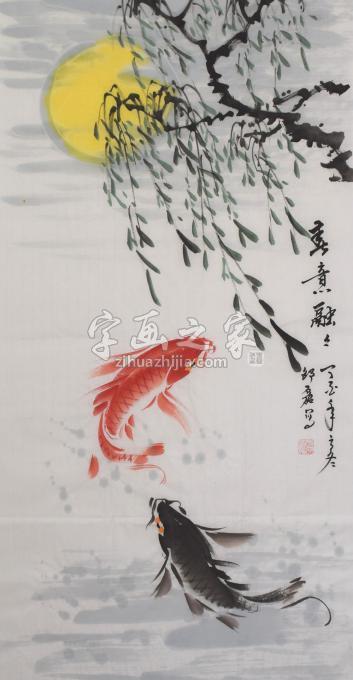 春意融々
丁酉年之冬
邹磊写
字画之家
zihuazhijia.com